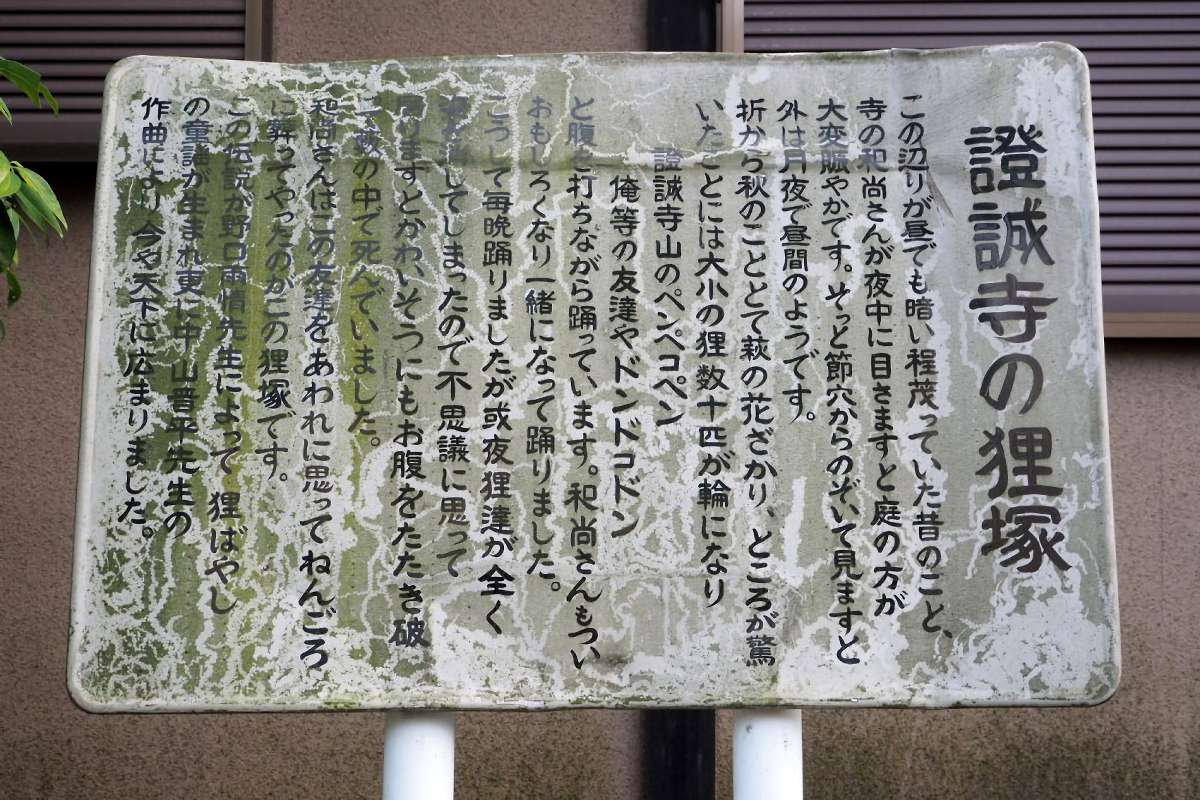 證誠寺の狸塚
この辺りが昼でも暗い程茂っていた昔のこと、
寺の和尚さんが夜中に目さますと庭の方が
大変賑やかです。そっと節穴からのぞいて見ますと
外は月夜で昼間のようです。
折から秋のこととて萩の花ざかり、ところが驚
いたことには大小の狸数十匹が輪になり
證誠寺山のペンペコペン
俺等の友達やドンドコドン
と腹を打ちながら踊っています。和尚さんもつい
おもしろくなり一緒になって踊りました。
こうして毎晩踊りましたが或夜狸達が全く
してしまったので不思議に思って
りますとかわいそうにもお腹をたたき破
の中で死んでいました。
和尚さんはこの友達をあわれに思ってねんごろ
に葬ってやったのがこの狸塚です。
この伝説が野口雨情先生によって狸ばやし
の童謡が生まれ更に中山晋平先生の
作曲により今や天下に広まりました。